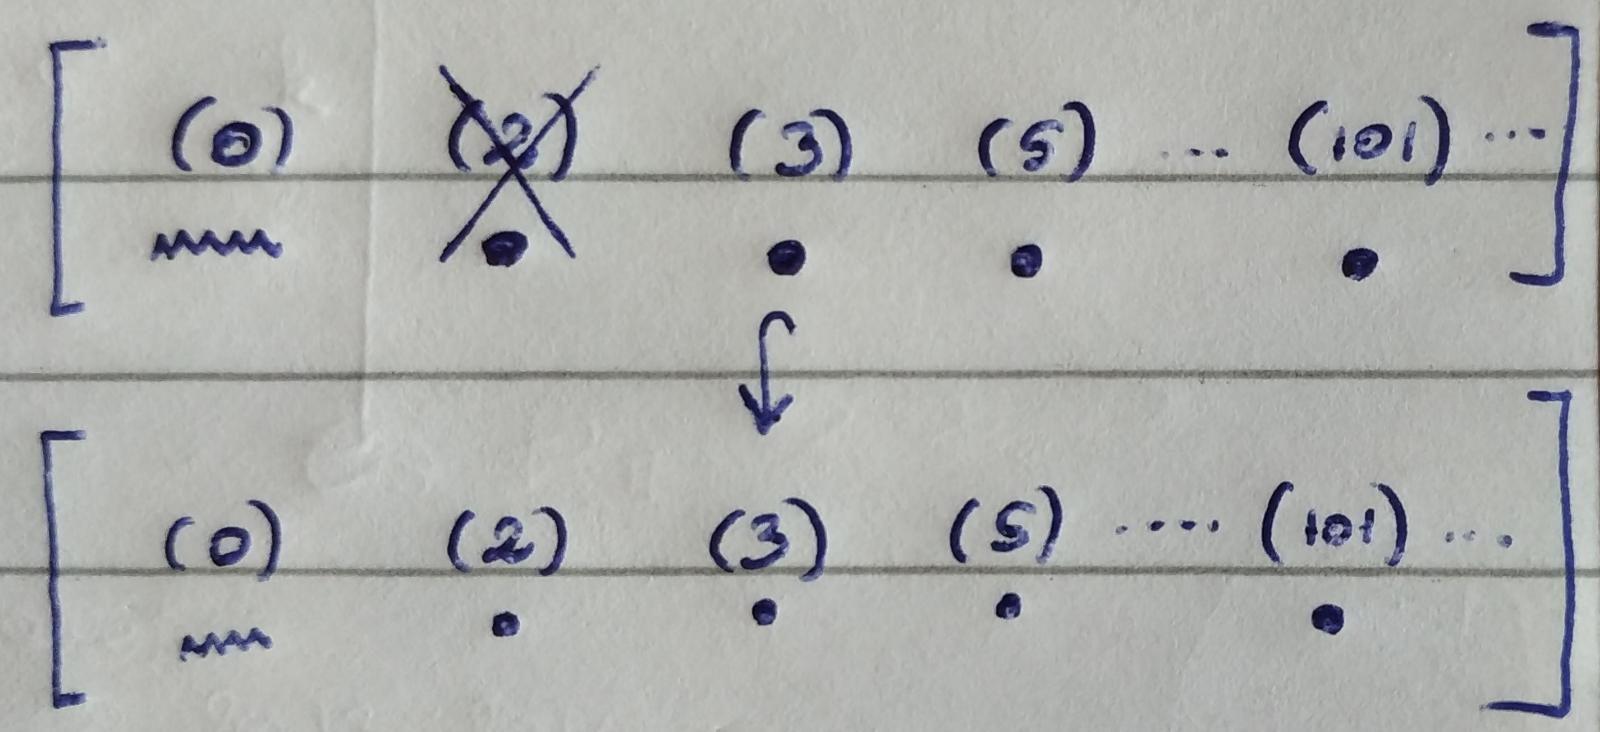 [ (0) (2) (3) (5) ... (101) ... ]
[ (0) (2) (3) (5) .... (101) ... ]